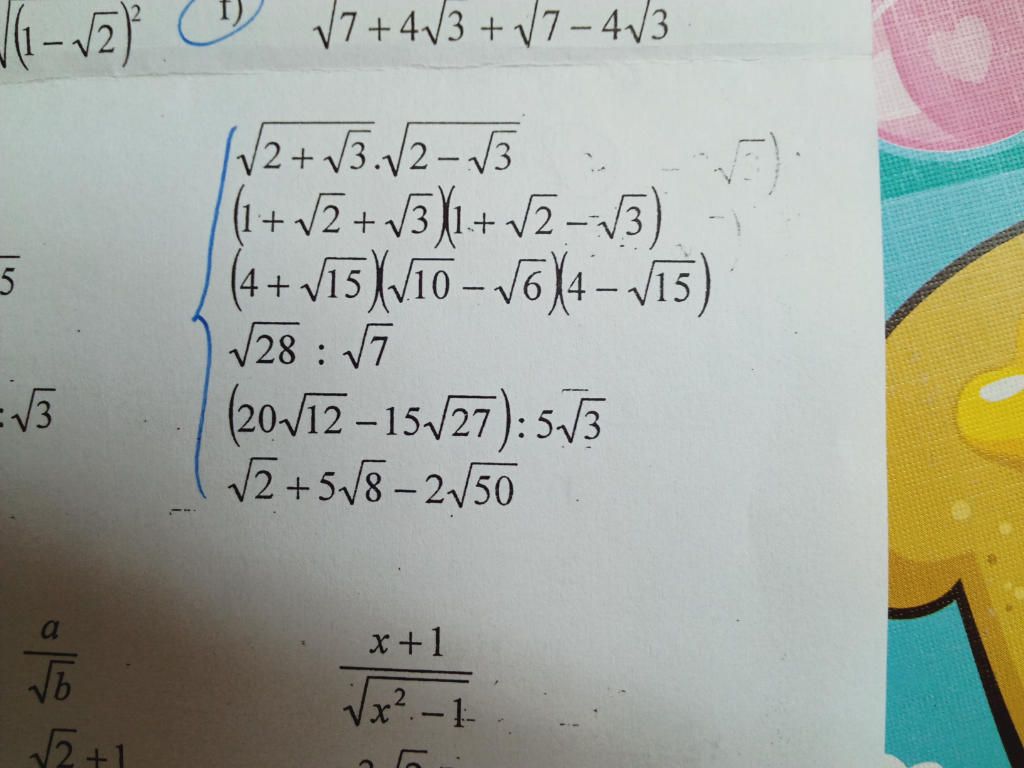 √(1 − √2)² f) √7 + 4√3 + √7 − 4√3
√2 + √3 . √2 − √3
(1 + √2 + √3)(1 + √2 − √3)
5 (4 + √15)(√10 − √6)(4 − √15)
√28 : √7
: √3 (20√12 − 15√27) : 5√3
√2 + 5√8 − 2√50
a/√b x + 1/√x² − 1
√2 + 1